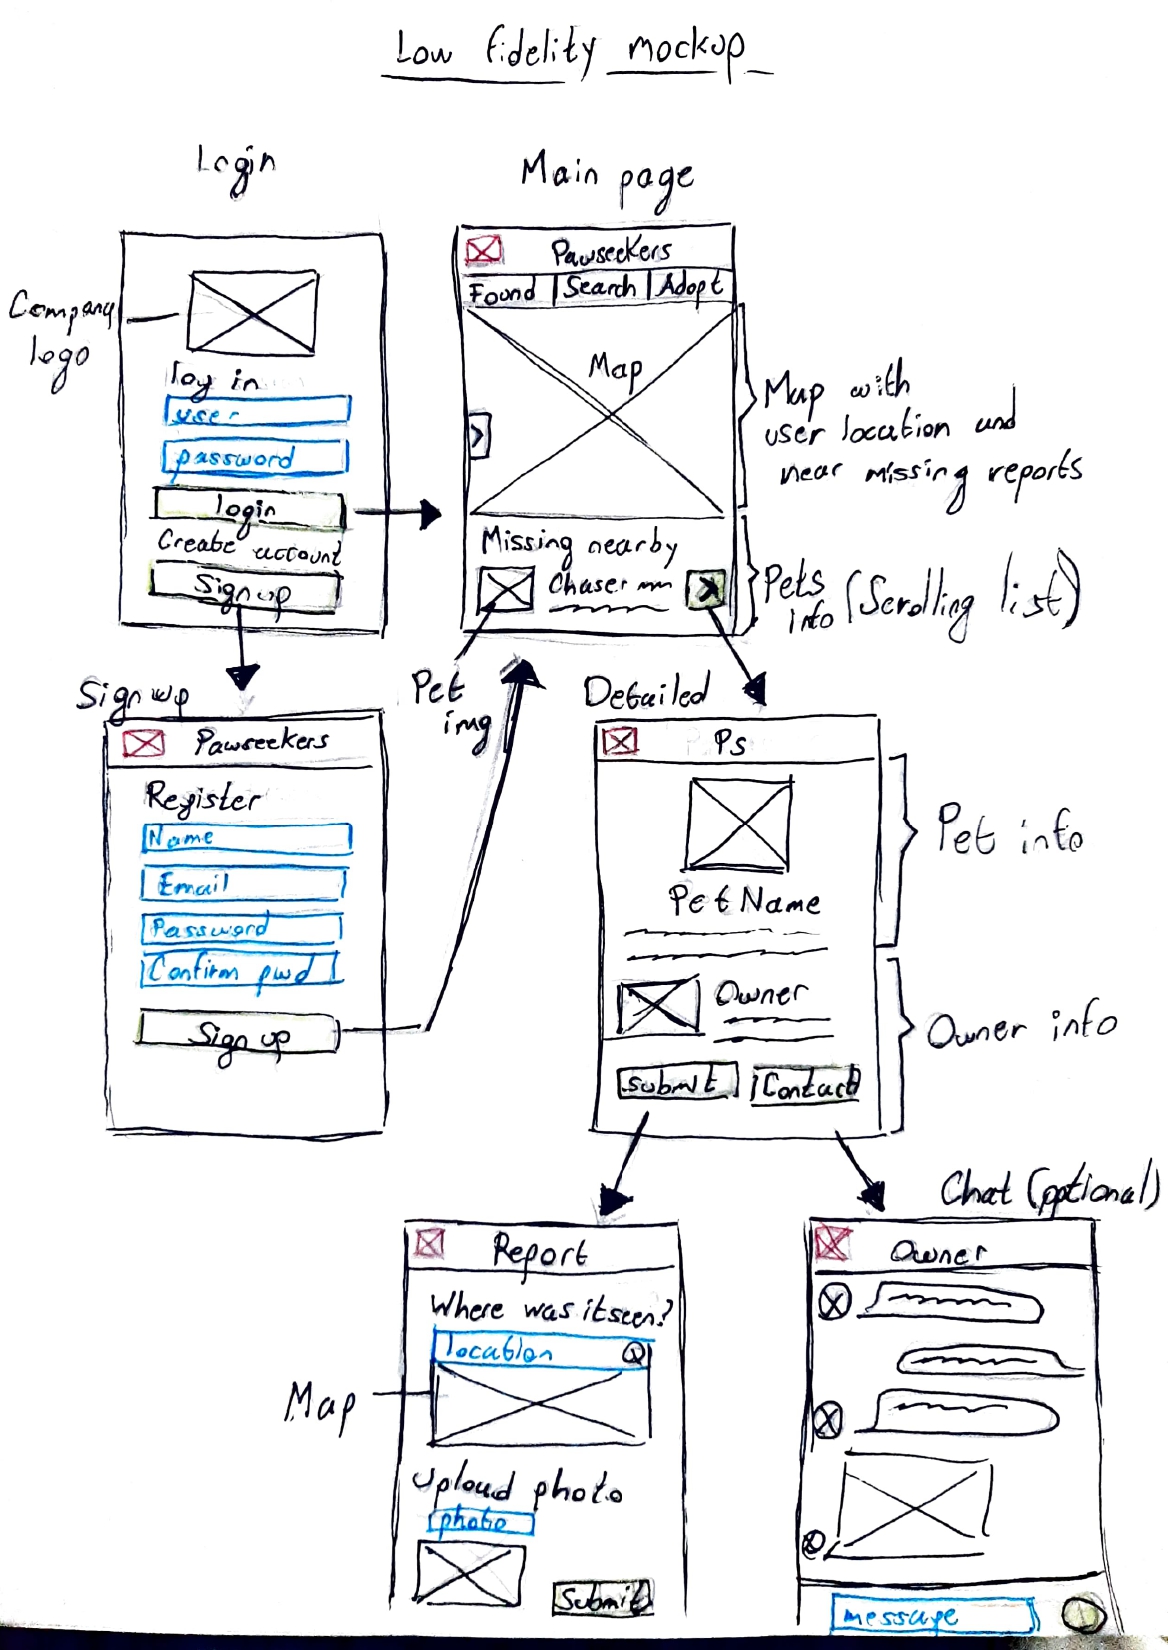 Low fidelity mockup
Login
Company
logo
log in
user
password
login
Create account
Sign up
Main page
Pawseekers
Found
Search
Adopt
Map
Map with
user location and
near missing reports
Missing nearby
Chaser
Pets
info (Scrolling list)
Pet
img
Sign up
Pawseekers
Register
Name
Email
Password
Confirm pwd
Sign up
Detailed
Ps
Pet Name
Pet info
Owner
Owner info
submit
Contact
Report
Where was it seen?
location
Map
Upload photo
photo
Submit
Chat (optional)
Owner
message